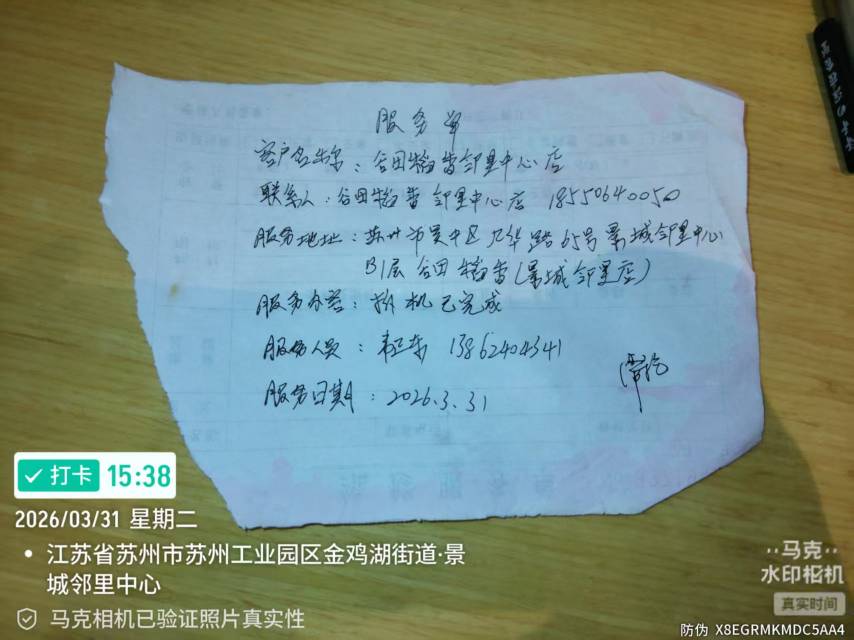 服务单
客户名称：谷田稻香邻里中心店
联系人：谷田稻香邻里中心店 18550640050
服务地址：苏州市吴中区九华路65号景城邻里中心
B1层谷田稻香（景城邻里店）
服务内容：拆机已完成
服务人员：韦正东 13862404341
服务日期：2026.3.31
打卡 15:38
2026/03/31 星期二
江苏省苏州市苏州工业园区金鸡湖街道·景
城邻里中心
马克相机已验证照片真实性
马克
水印相机
真实时间
防伪 X8EGRMKMDC5AA4